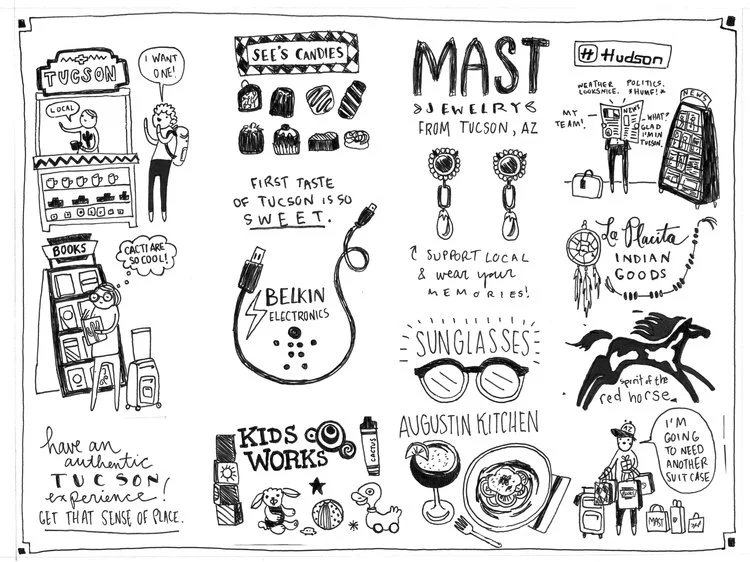 TUCSON
LOCAL
I WANT
ONE!
BOOKS
CACTI ARE
SO COOL!
have an
authentic
TUCSON
experience!
GET THAT SENSE OF PLACE.
SEE'S CANDIES
FIRST TASTE
OF TUCSON IS SO
SWEET.
BELKIN
ELECTRONICS
KIDS
WORKS
CACTUS
MAST
JEWELRY
FROM TUCSON, AZ
SUPPORT LOCAL
& wear your
MEMORIES!
SUNGLASSES
AUGUSTIN KITCHEN
# Hudson
WEATHER
LOOKS NICE.
POLITICS.
*HUMF!*
MY
TEAM!
NEWS
WHAT?
GLAD
I'M IN
TUCSON.
NEWS
La Placita
INDIAN
GOODS
spirit of the
red horse
I'M
GOING
TO NEED
ANOTHER
SUITCASE
MAST